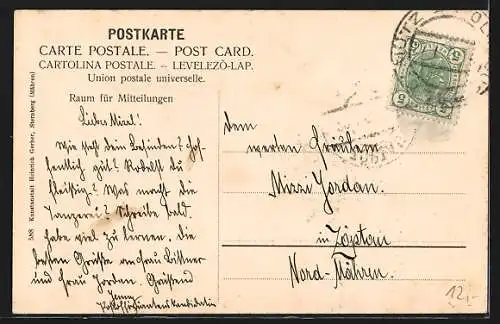 POSTKARTE
CARTE POSTALE. — POST CARD.
CARTOLINA POSTALE. — LEVELEZŐ-LAP.
Union postale universelle.
Raum für Mitteilungen
588 Kunstanstalt Heinrich Gerber, Sternberg (Mähren)
Liebes Mizal!
Wie steht dein Befinden? Hof-
fentlich gut? Robelst du
fleißig? Was macht die
Tanzerei? Schreibe bald.
habe viel zu lernen, die
besten Grüße an Frau Littner
und Frau Jordan. Grüßend
Jenny
dem
werten Fräulein
Mizzi Jordan.
in Zöptau
Nord-Mähren.
5 5
5 5
12,-